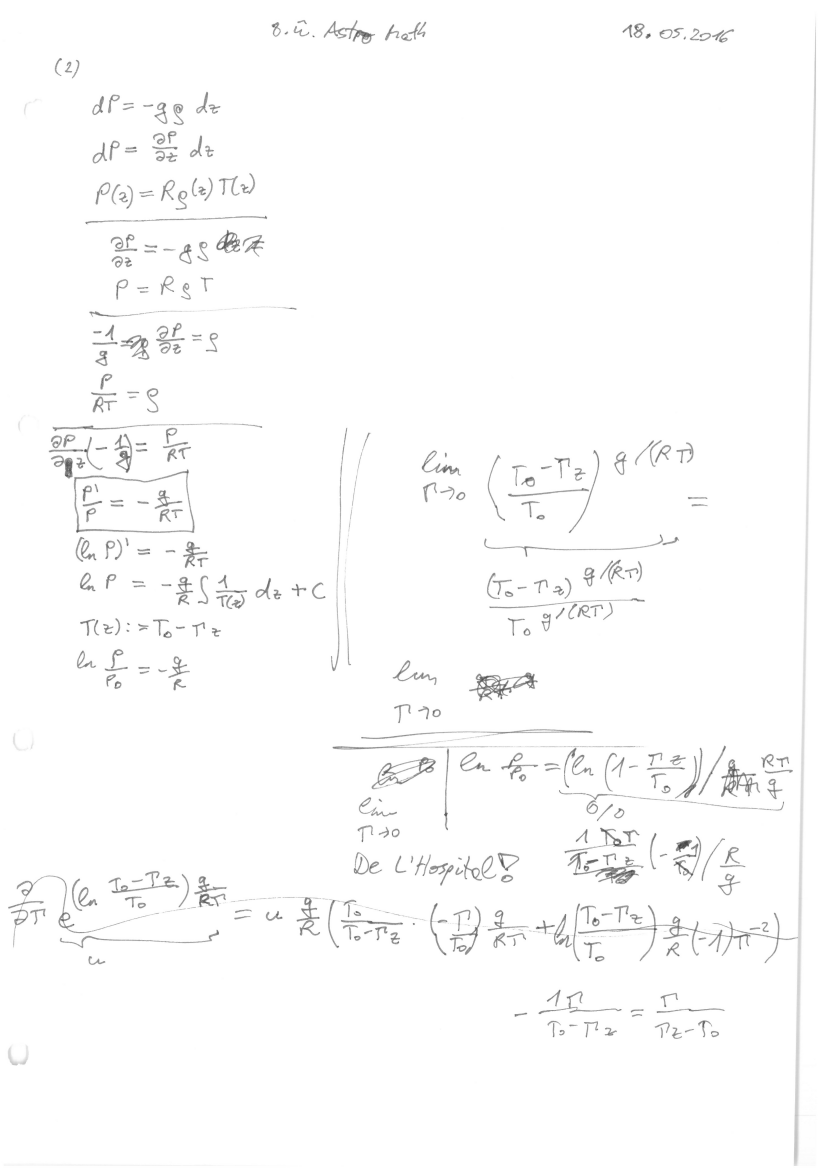 8. Ü. Astro Math 18.05.2016
(2)
dP = -gρ dz
dP = ∂P/∂z dz
P(z) = Rρ(z) T(z)
∂P/∂z = -gρ
P = RρT
-1/g ∂P/∂z = ρ
P/RT = ρ
∂P/∂z (-1/g) = P/RT
P'/P = -g/RT
(ln P)' = -g/RT
ln P = -g/R ∫ 1/T(z) dz + C
T(z) := T₀ - Γz
ln P/P₀ = -g/R
lim Γ→0 ((T₀ - Γz)/T₀)^(g/(RΓ)) =
(T₀ - Γz)^(g/(RΓ)) / T₀^(g/(RΓ))
lim Γ→0
lim Γ→0 | ln P/P₀ = (ln (1 - Γz/T₀)) / RΓ/g
0/0
De L'Hospital!
∂/∂Γ e^((ln (T₀ - Γz)/T₀) g/RΓ) = u g/R (T₀/(T₀ - Γz) · (-Γ/T₀) g/RΓ + ln((T₀ - Γz)/T₀) g/R (-1) Γ^-2)
u
- 1Γ/(T₀ - Γz) = Γ/(Γz - T₀)